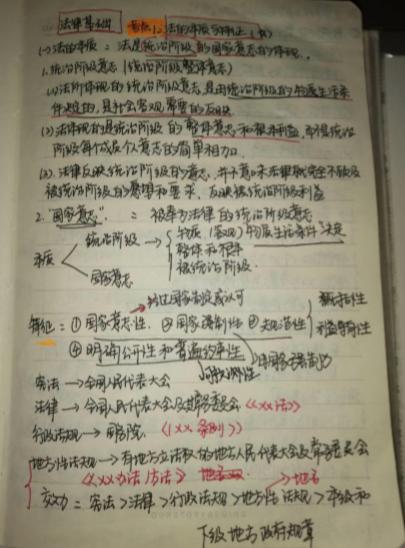 法律基础 考点1：法的本质与特征（必）
(一)法的本质：法是统治阶级的国家意志的体现.
1.统治阶级意志（统治阶级整体意志）
(1)法所体现的统治阶级意志,是由统治阶级的物质生活条
件决定的,是社会客观需要的反映
(2)法体现的是统治阶级的整体意志和根本利益,而不是统治
阶级每个成员个人意志的简单相加.
(3).法律反映统治阶级的意志,并不意味法律就完全不顾及
被统治阶级的愿望和要求、反映被统治阶级利益
2."国家意志"：= 被奉为法律的统治阶级意志
本质
统治阶级 → 物质(客观)物质生活条件 决定
整体和根本
被统治阶级.
国家意志
→ 经过国家制定或认可
特征：①国家意志性 ②国家强制性 ③规范性
利益导向性
④明确公开性和普遍约束性
由国家强制力
宪法 → 全国人民代表大会
法律 → 全国人民代表大会及其常务委员会《XX法》
行政法规 → 国务院 《XX条例》
地方性法规 → 有地方立法权的地方人民代表大会及其常务委员会
《XX办法/方法》
效力 = 宪法 > 法律 > 行政法规 > 地方性法规 > 本级和
下级地方政府规章